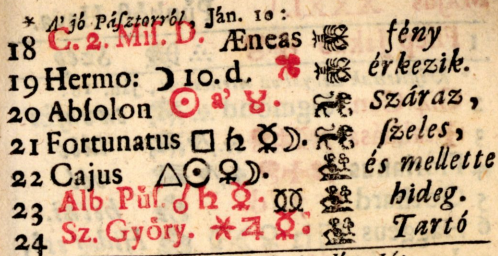 * A' jó Páſztorról, Ján. 10:
18 C. 2. Miſ. D. Æneas fény
19 Hermo: ☽ 10. d. érkezik.
20 Abſolon ☉ a' ♉. Száraz,
21 Fortunatus □ ♄ ☿ ☽. ſzeles,
22 Cajus △ ☉ ♀ ☽. és mellette
23 Alb Púſ. ☌ ♄ ☿. hideg.
24 Sz. Györy. ⚹ ♃ ☿: Tartó